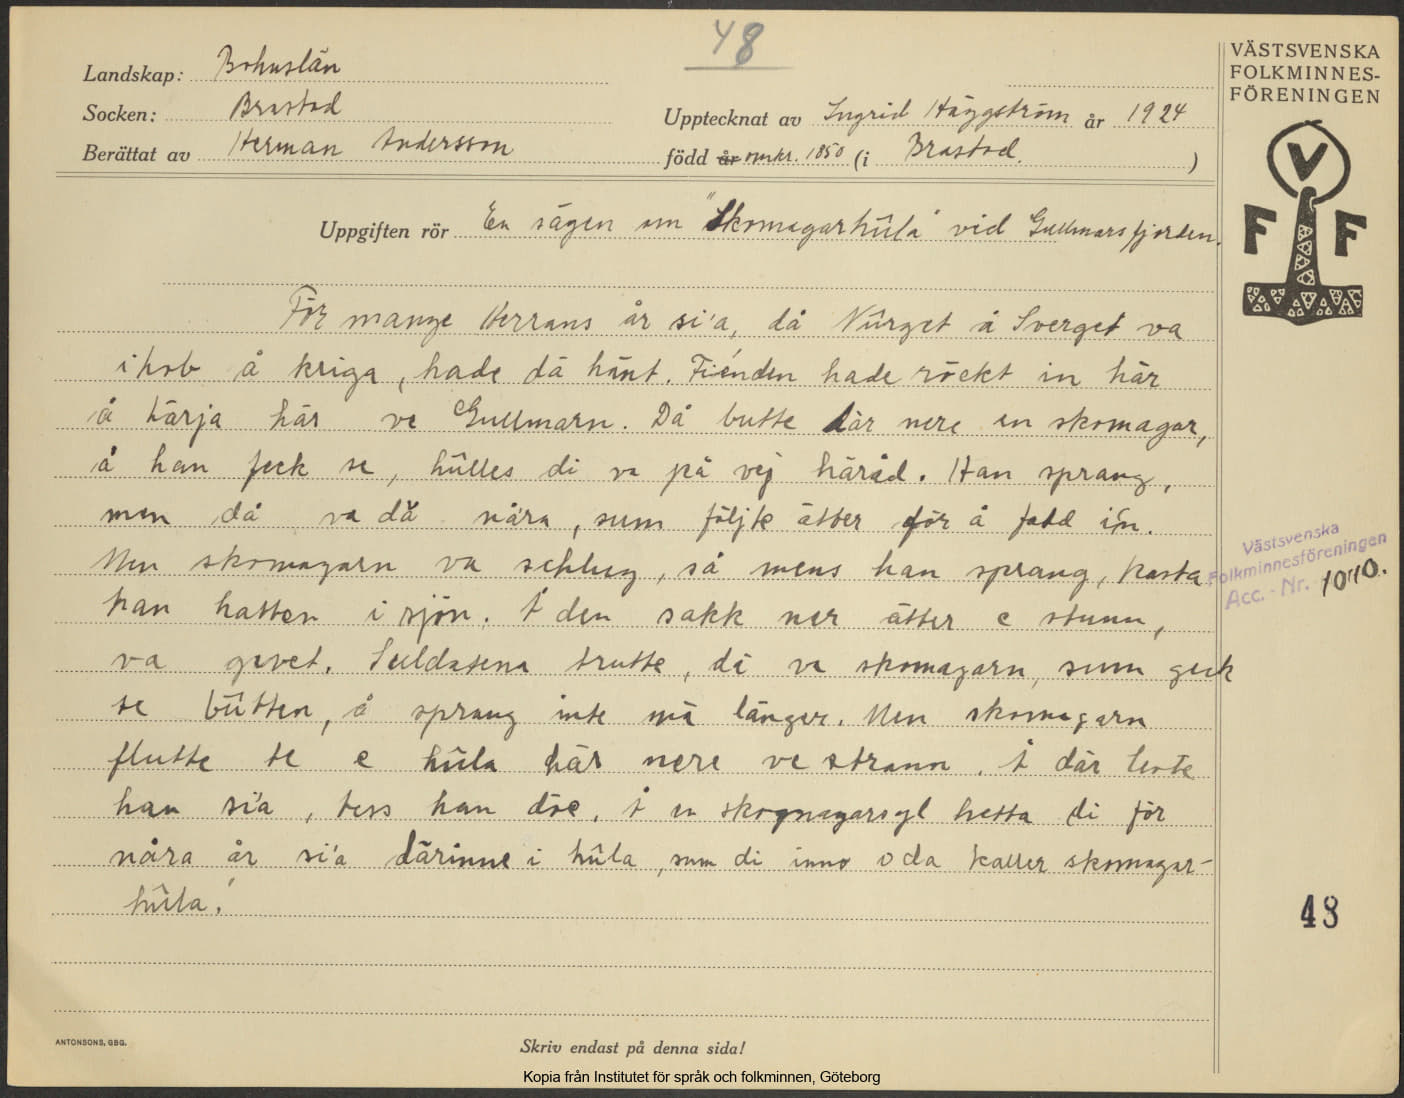 48
Landskap: Bohuslän
Socken: Brastad
Berättat av Herman Andersson
Upptecknat av Ingrid Häggström år 1924
född år omkr. 1850 (i Brastad.)
VÄSTSVENSKA
FOLKMINNES-
FÖRENINGEN
V
F F
Uppgiften rör En sägen om "Skomagarhûla" vid Gullmarsfjorden.
För mange Herrans år si'a, då Nûrget å Sverget va
ihob å kriga, hade dä hänt. Fiénden hade röckt in här
å härja här ve Gullmarn. Då butte där nere en skomagar,
å han feck se, hûlles di va på vej häråd. Han sprang,
men då va dä nåra, sum följte ätter för å fadd ín.
Men skomagarn va schlug, så mens han sprang, kasta
han hatten i sjön. Å den sakk ner ätter e stunn,
va gevet. Suldatena trutte, dä va skomagarn, sum geck
te bûtten, å sprang inte mä länger. Men skomagarn
flutte te e hûla här nere ve strann. Å där levte
han si'a, tess han döe. Å en skogmagarsyl hetta di för
nåra år si'a därinne i hûla, sum di inno oda kaller skomagar-
hûla.
Västsvenska
Folkminnesföreningen
Acc. - Nr. 1040.
48
ANTONSONS, GBG.
Skriv endast på denna sida!
Kopia från Institutet för språk och folkminnen, Göteborg